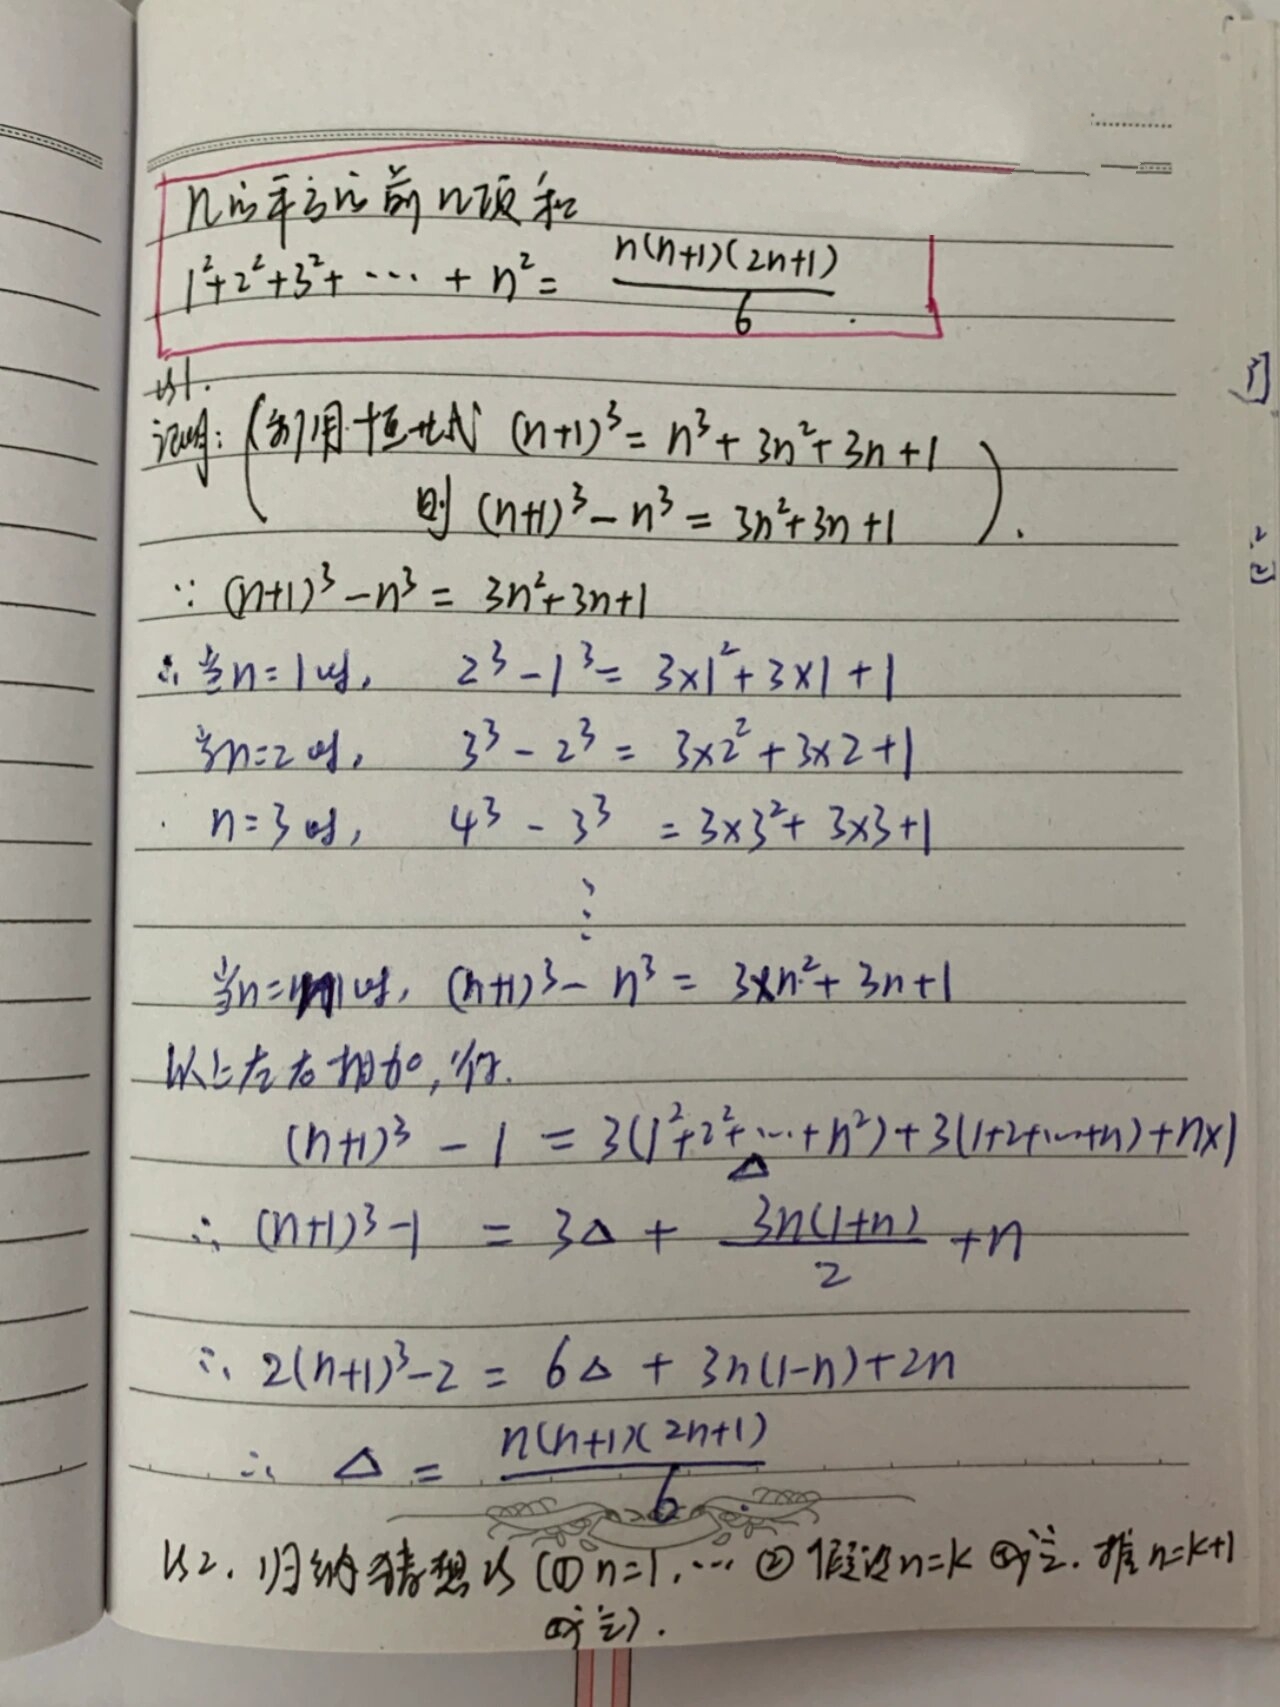 n的平方的前n项和
1²+2²+3²+ ⋯ + n² = n(n+1)(2n+1)/6.
法1.
证明: (利用恒等式 (n+1)³ = n³ + 3n² + 3n + 1
则 (n+1)³ − n³ = 3n²+3n+1).
∵ (n+1)³ − n³ = 3n²+3n+1
∴ 当n=1时, 2³ − 1³ = 3×1² + 3×1 + 1
当n=2时, 3³ − 2³ = 3×2² + 3×2 + 1
n=3时, 4³ − 3³ = 3×3² + 3×3 + 1
⋮
当n= 时, (n+1)³ − n³ = 3×n² + 3n + 1
以上左右相加, 得.
(n+1)³ − 1 = 3(1²+2²+⋯+n²)+3(1+2+⋯+n)+n×1
△
∴ (n+1)³−1 = 3△ + 3n(1+n)/2 + n
∴ 2(n+1)³−2 = 6△ + 3n(1−n)+2n
∴ △ = n(n+1)(2n+1)/6.
法2. 归纳猜想法 (① n=1, ⋯ ② 假设n=k 成立. 推 n=k+1
成立).